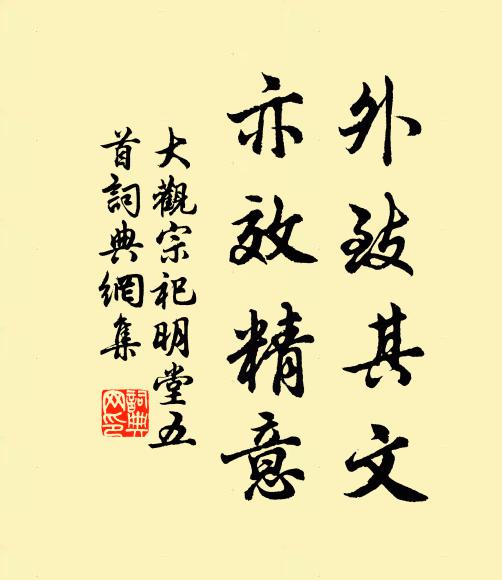 外致其文
亦效精意
大觀宗祀明堂五
首詞典網集
詞典網印